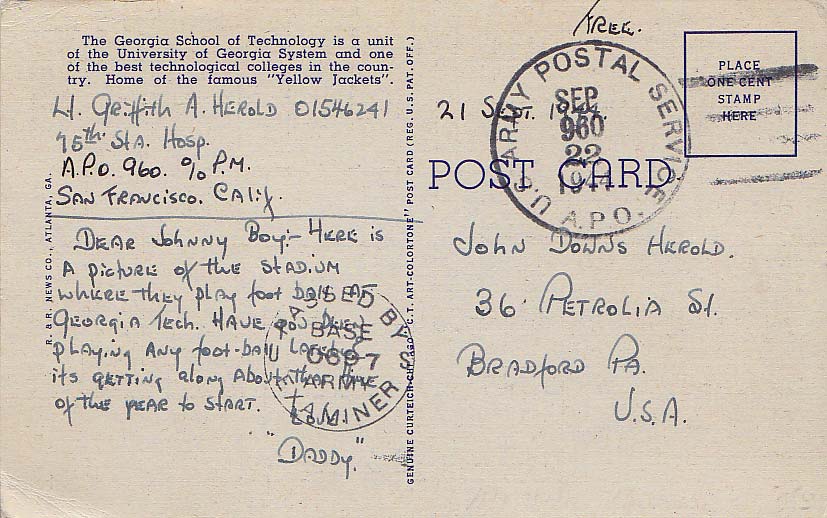 The Georgia School of Technology is a unit
of the University of Georgia System and one
of the best technological colleges in the coun-
try. Home of the famous "Yellow Jackets".
Lt. Griffith A. Herold 01546241
75th Sta. Hosp.
A.P.O. 960. % P.M.
San Francisco. Calif.
Dear Johnny Boy:- Here is
a picture of the stadium
where they play foot ball at
Georgia Tech. Have you been
playing any foot-ball lately
its getting along about that time
of the year to start.
Love.
"Daddy."
PASSED BY
BASE
0697
ARMY
EXAMINER U.S.
R. & R. NEWS CO., ATLANTA, GA.
GENUINE CURTEICH-CHICAGO "C.T. ART-COLORTONE" POST CARD (REG. U.S. PAT. OFF.)
Free.
21 Sept. 1944.
U.S. ARMY POSTAL SERVICE
SEP
960
22
1944
A.P.O.
PLACE
ONE CENT
STAMP
HERE
POST CARD
John Downs Herold.
36 Petrolia St.
Bradford Pa.
U.S.A.